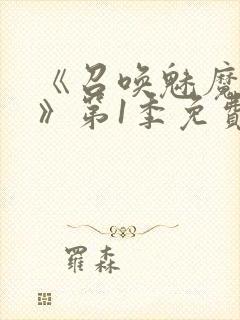 《召唤魅魔
》第1季免费
羅森